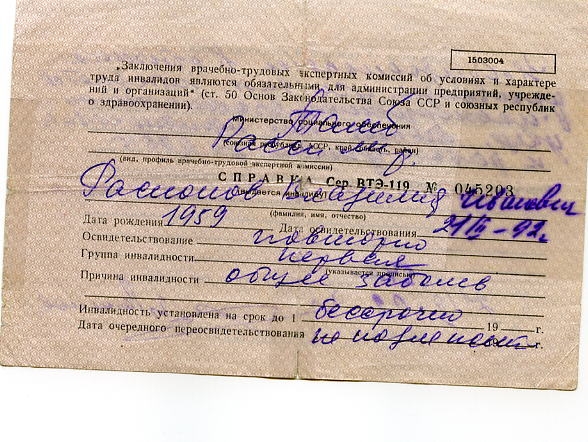 1503004
„Заключения врачебно-трудовых экспертных комиссий об условиях и характере
труда инвалидов являются обязательными для администрации предприятий, учрежде-
ний и организаций" (ст. 50 Основ Законодательства Союза ССР и союзных республик
о здравоохранении).
Министерство социального обеспечения
(вид, профиль врачебно-трудовой экспертной комиссии)
СПРАВКА Сер. ВТЭ-119 № 045203
Владимир Иванович
(фамилия, имя, отчество)
Дата рождения 1959 Дата освидетельствования 21 92г
Освидетельствование повторно
Группа инвалидности первая
(указывается прописью)
Причина инвалидности общее заболев
Инвалидность установлена на срок до 1 бессрочно 19 г.
Дата очередного переосвидетельствования не подлежит г.